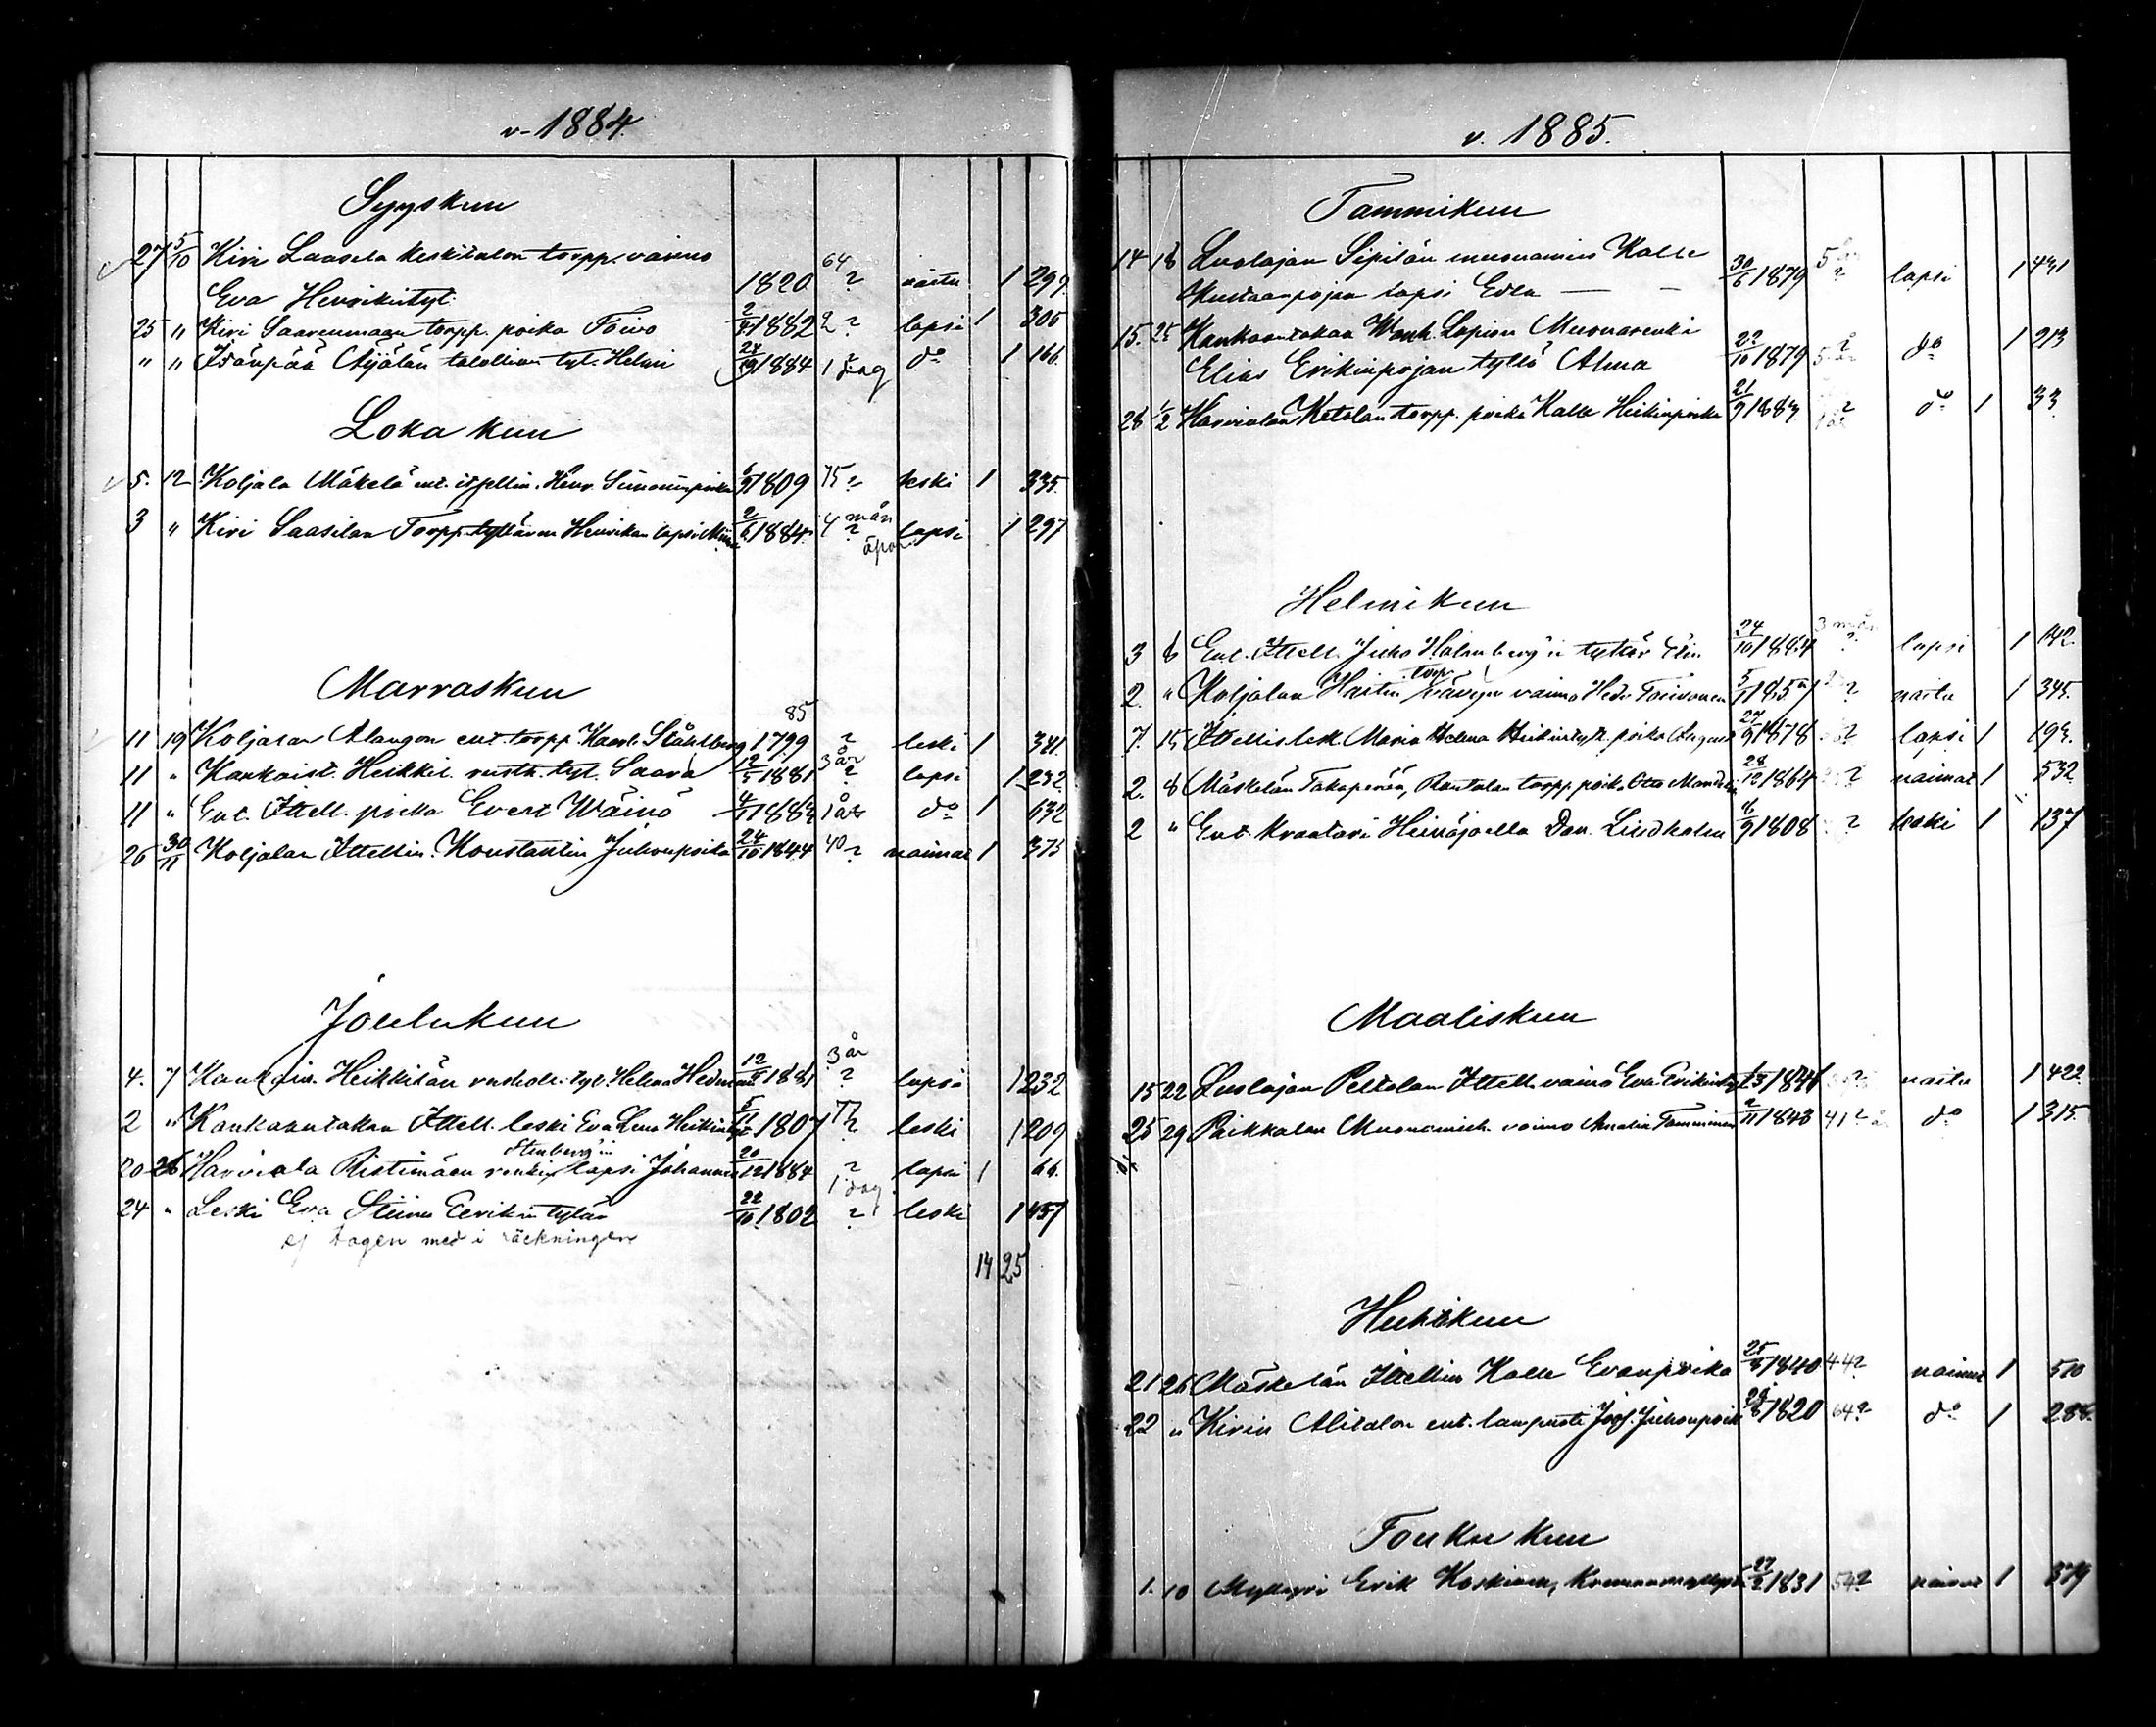 v. 1884.
Syyskuu
27 5/10 Kiri Laasila Keskitalon torpp. vaimo
Eva Henrikintyt. 1820 64 ? naitu 1 299.
25 " Kiri Saarenmaan torpp. poika Toivo 1882 2 ? lapsi 1 305
" " Idänpää Äijälän talollisen tyt. Helmi 1884 1 dag do 1 166.
Lokakuu
5. 12 Koljala Mäkelä ent. itsellin. Henr. Simoninpoika 1809 75 ? leski 1 335.
3 " Kiri Laasilan Torpp. tyttären Henrikan lapsi 2/6 1884 4 mån ? äpar lapsi 1 297
Marraskuu
11 19 Koljalan Alangon ent. torpp. Kaarl. Ståhlberg 1799 85 ? leski 1 341.
11 " Kankaist. Heikkil. rusth. tyt. Saara 12/5 1881 3 år ? lapsi 1 232
11 " Ent. Ittell. poika Evert Wäinö 1883 1 år do 1 632
26 30/11 Koljalan Ittellin. Konstantin Juhonpoika 24/10 1844 40 ? naimat 1 375
Joulukuu
4. 7 Kankais. Heikkilän rusthol. tyt. Helena 12/5 1881 3 år ? lapsi 1 232
2 " Kankaantakaa Ittell. leski Eva Lena Heikintyt 1807 77 ? leski 1 209
Stenberg'in
20 26 Harviala Ristimäen rengin lapsi Johannes 20/12 1884 ? 1 dag lapsi 1 66.
24 " Leski Eva Stiina Eerikin tytär 22/10 1802 ? leski 1 457
ej tagen med i räckningen
14 25
v. 1885.
Tammikuu
14 18 Luolajan Sipilän muonamies Kalle
Kustaanpojan lapsi Edla — — 30/6 1879 5 år ? lapsi 1 431
15. 25 Kankaantakaa Wanh. Lapion Muonarenki
Elias Erikinpojan tyttö Alma 22/10 1879 5 år ? do 1 213
26 1/2 Harvialan Ketolan torpp. poika Kalle Heikinpoika 21/9 1883. 1 år ? do 1 33
Helmikuu
3 8 Ent. Ittell. Juho Holmberg'in tytär Elin 24/10 1884 3 mån ? lapsi 1 142.
torp.
2. " Koljalan Haitin vävyn vaimo Hedv. Toivonen 1857 ? naitu 1 345.
7. 15 Ittellis lesk. Maria Helena Heikintyt. poika August 27/9 1878 ? lapsi 1 193.
2. 8 Mäskelän Takaperän, Rantalan torpp. poik. Otto 28/12 1864 ? naimat 1 532
2 " Ent. Kraatari Heinäjoella Dan. Lindholm 1808 ? leski 1 137
Maaliskuu
15 22 Luolajan Peltolan Ittell. vaimo Eva Erikintyt 1841 ? naitu 1 422.
25 29 Paikkalan Muonamieh. vaimo Amalia Tamminen 2/11 1843 41 ? do 1 315.
Huhtikuu
21 26 Mäskelän Ittellin Kalle Evanpoika 1840 44 ? naimat 1 510
22 " Kirin Alitalon ent. lampuoti Jos. Juhonpoik 1820 64 ? do 1 288.
Toukokuu
1. 10 Mylläri Erik Koskinen, 27/2 1831 54 ? naimat 1 379